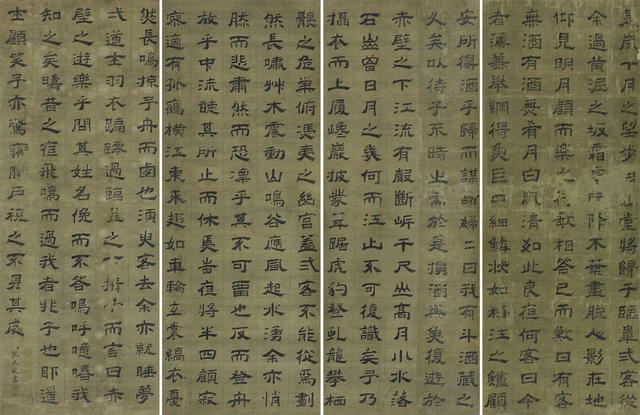 是歲十月之望步自雪堂將歸于臨皋二客從
余過黃泥之坂霜露既降木葉盡脫人影在地
仰見明月顧而樂之行歌相答已而歎曰有客
無酒有酒無肴月白風清如此良夜何客曰今
者薄暮舉網得魚巨口細鱗狀如松江之鱸顧
安所得酒乎歸而謀諸婦婦曰我有斗酒藏之
久矣以待子不時之需於是攜酒與魚復遊於
赤壁之下江流有聲斷岸千尺山高月小水落
石出曾日月之幾何而江山不可復識矣予乃
攝衣而上履巉巖披蒙茸踞虎豹登虬龍攀栖
鶻之危巢俯馮夷之幽宮蓋二客不能從焉劃
然長嘯艸木震動山鳴谷應風起水湧余亦悄
然而悲肅然而恐凜乎其不可留也反而登舟
放乎中流聽其所止而休焉時夜將半四顧寂
寥適有孤鶴橫江東來翅如車輪玄裳縞衣戛
然長鳴掠予舟而西也須臾客去余亦就睡夢
弍道士羽衣蹁躚過臨皋之下揖余而言曰赤
壁之遊樂乎問其姓名俛而不答嗚呼噫嘻我
知之矣疇昔之夜飛鳴而過我者非子也耶道
士顧笑予亦驚寤啟戶視之不見其處